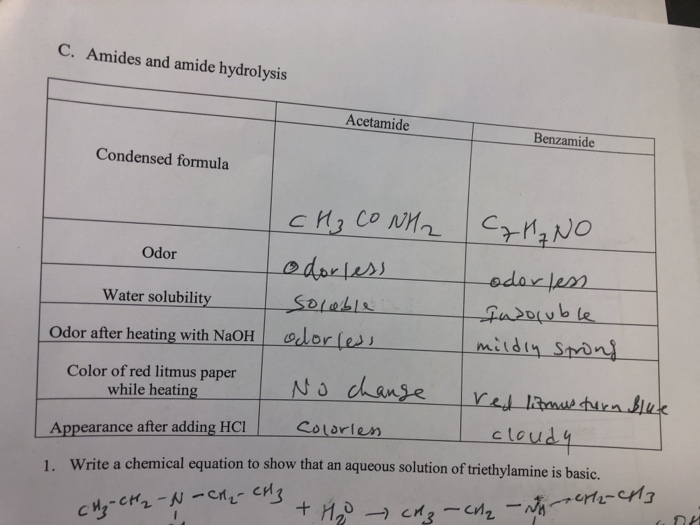 C. Amides and amide hydrolysis
Acetamide Benzamide
Condensed formula CH3 CO NH2 C7H7NO
Odor odorless odorless
Water solubility Soluble Insoluble
Odor after heating with NaOH odorless mildly strong
Color of red litmus paper while heating No change red litmus turn blue
Appearance after adding HCl Colorless cloudy
1. Write a chemical equation to show that an aqueous solution of triethylamine is basic.
CH3-CH2-N-CH2-CH3 + H2O → CH3-CH2-NH-CH2-CH3